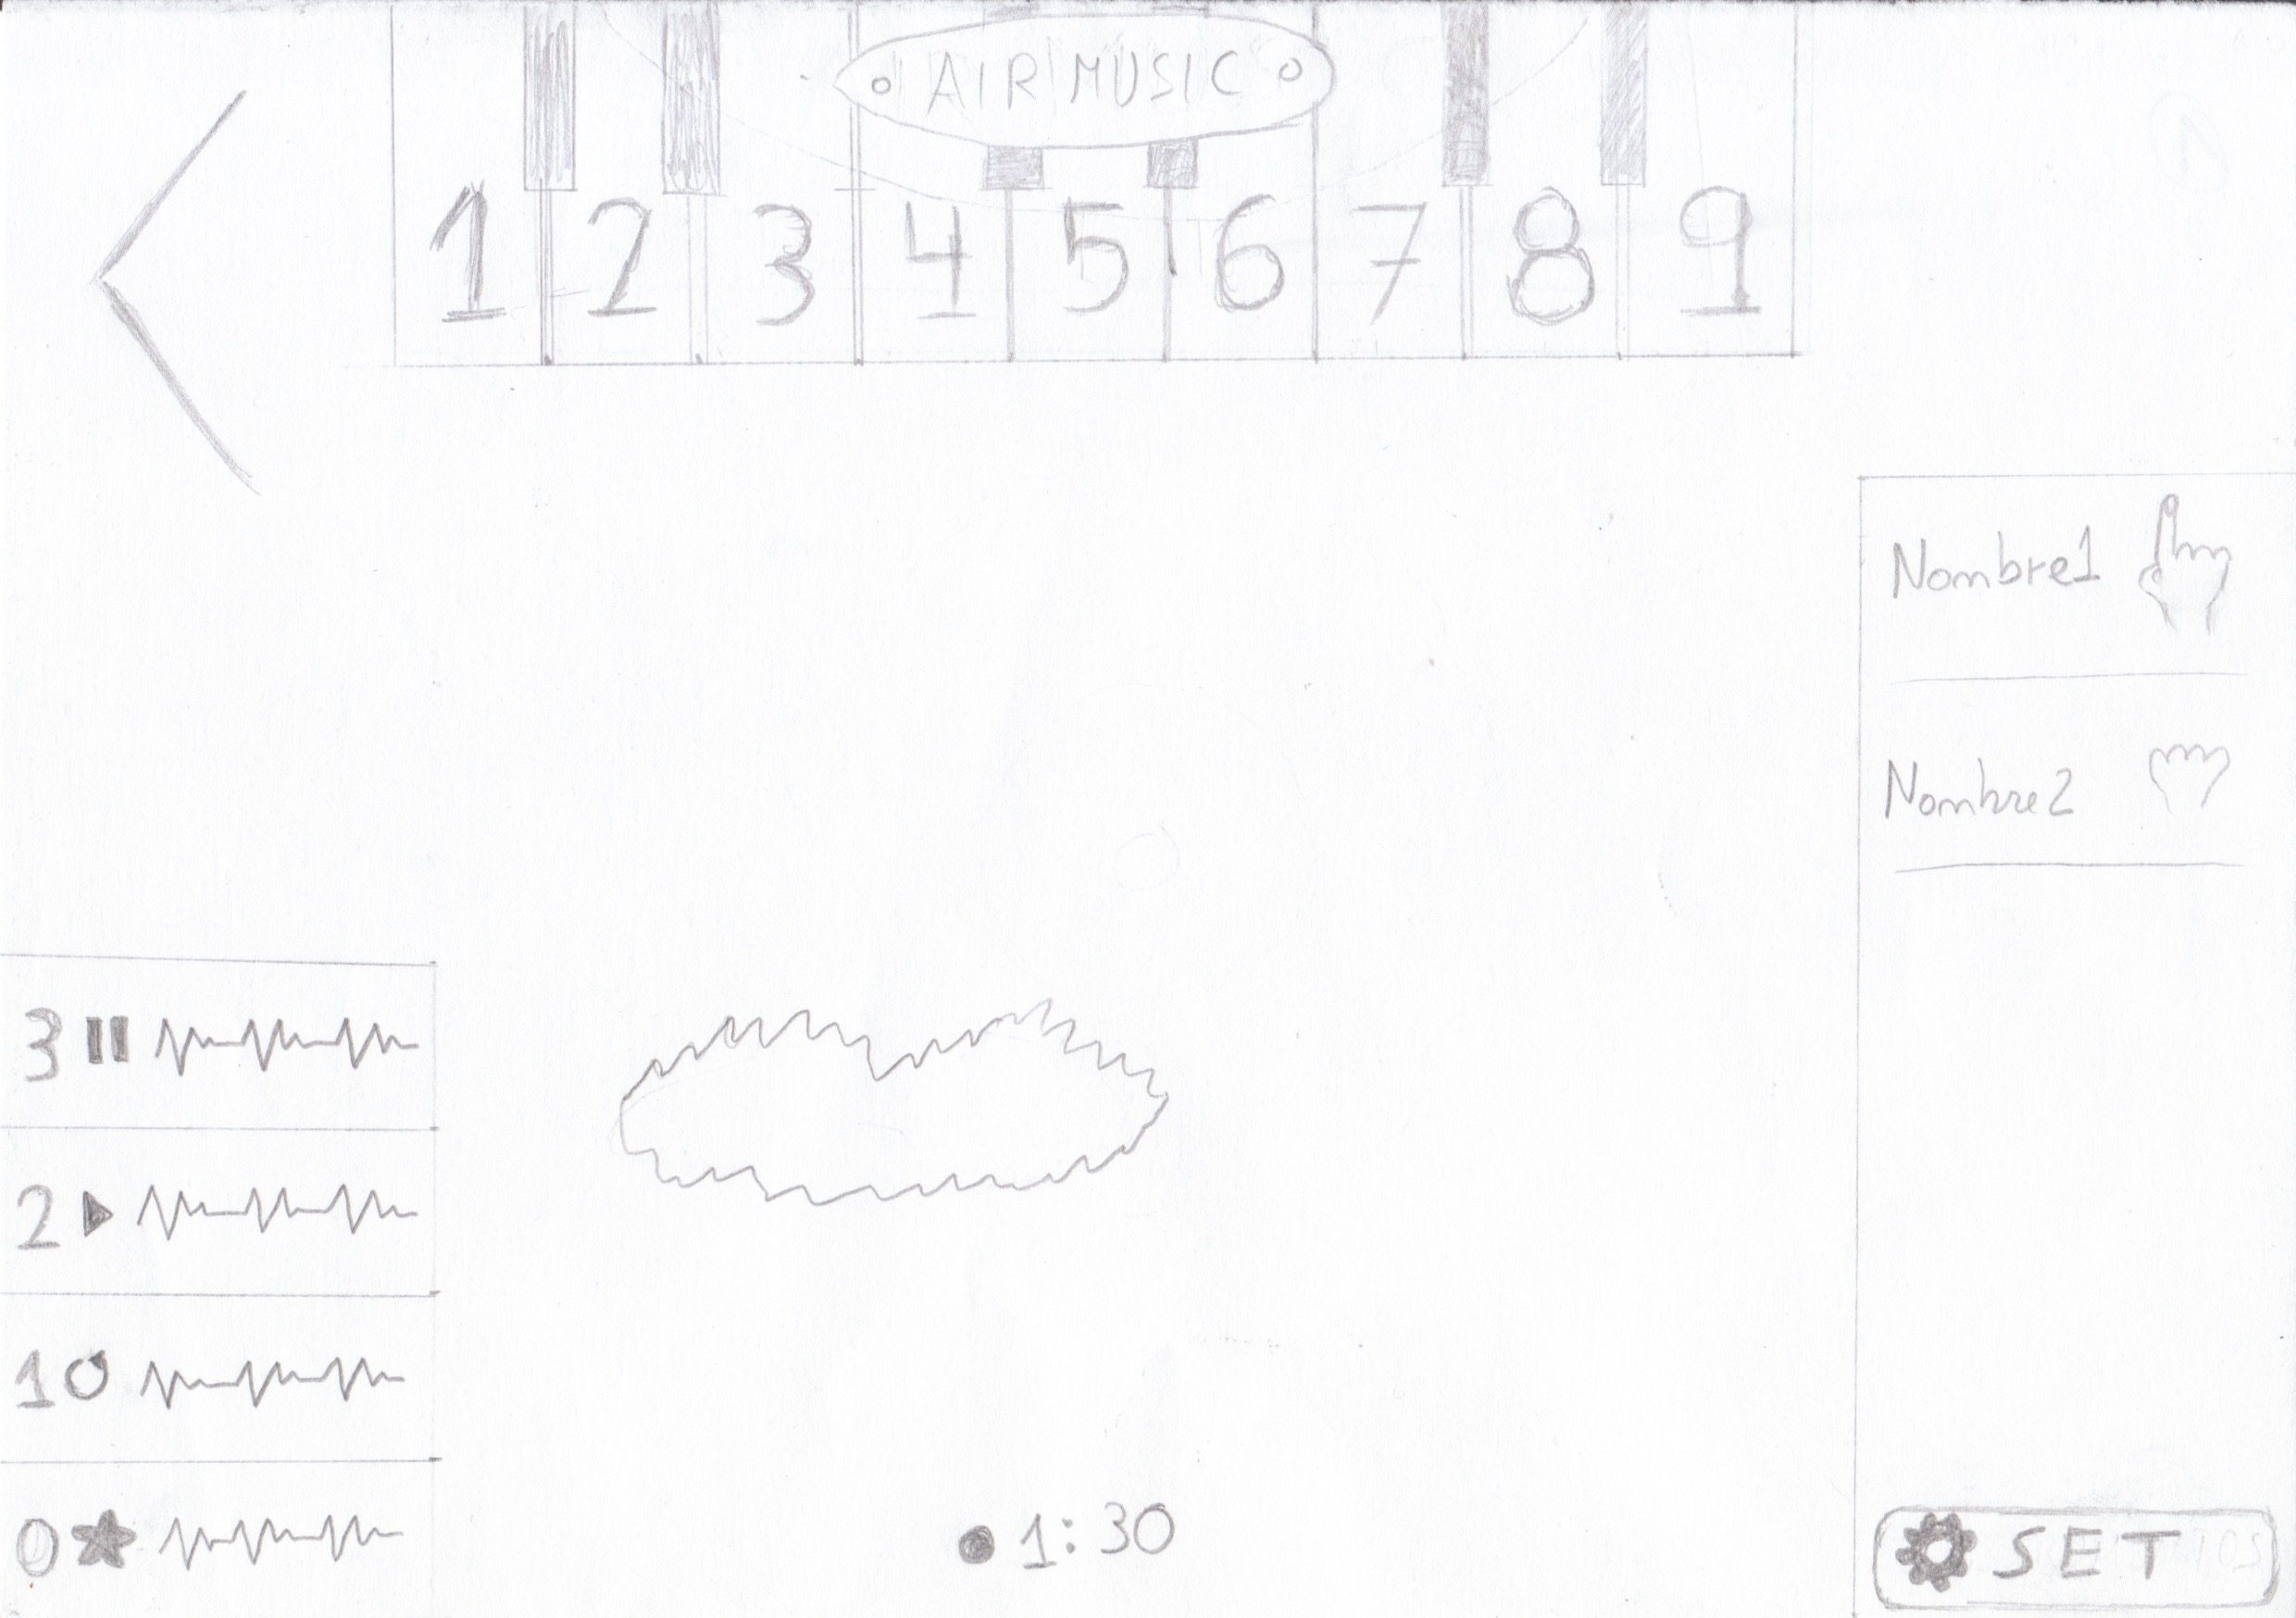 AIR MUSIC
1 2 3 4 5 6 7 8 9
Nombre1
Nombre2
3
2
1
0
1:30
SET